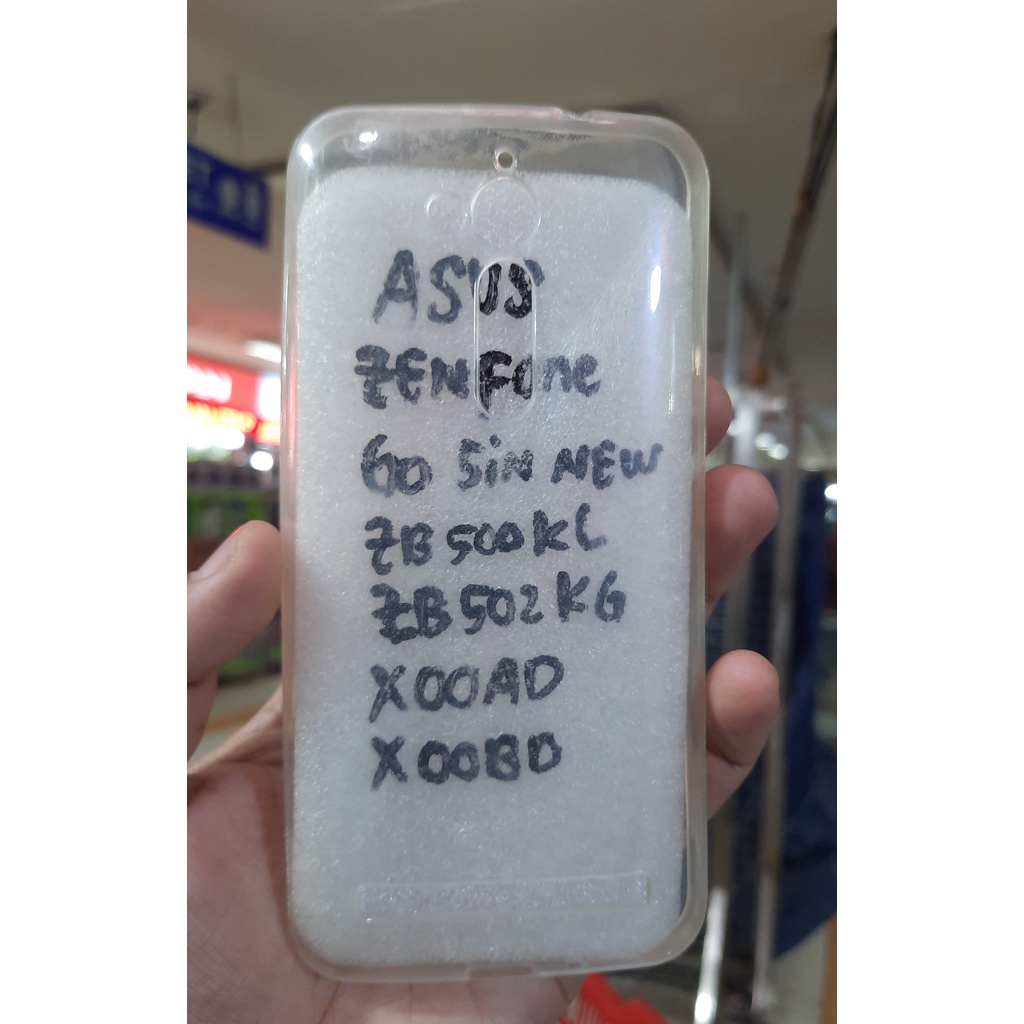 ASUS
ZENFONE
GO 5iN NEW
ZB500KL
ZB502KG
X00AD
X00BD